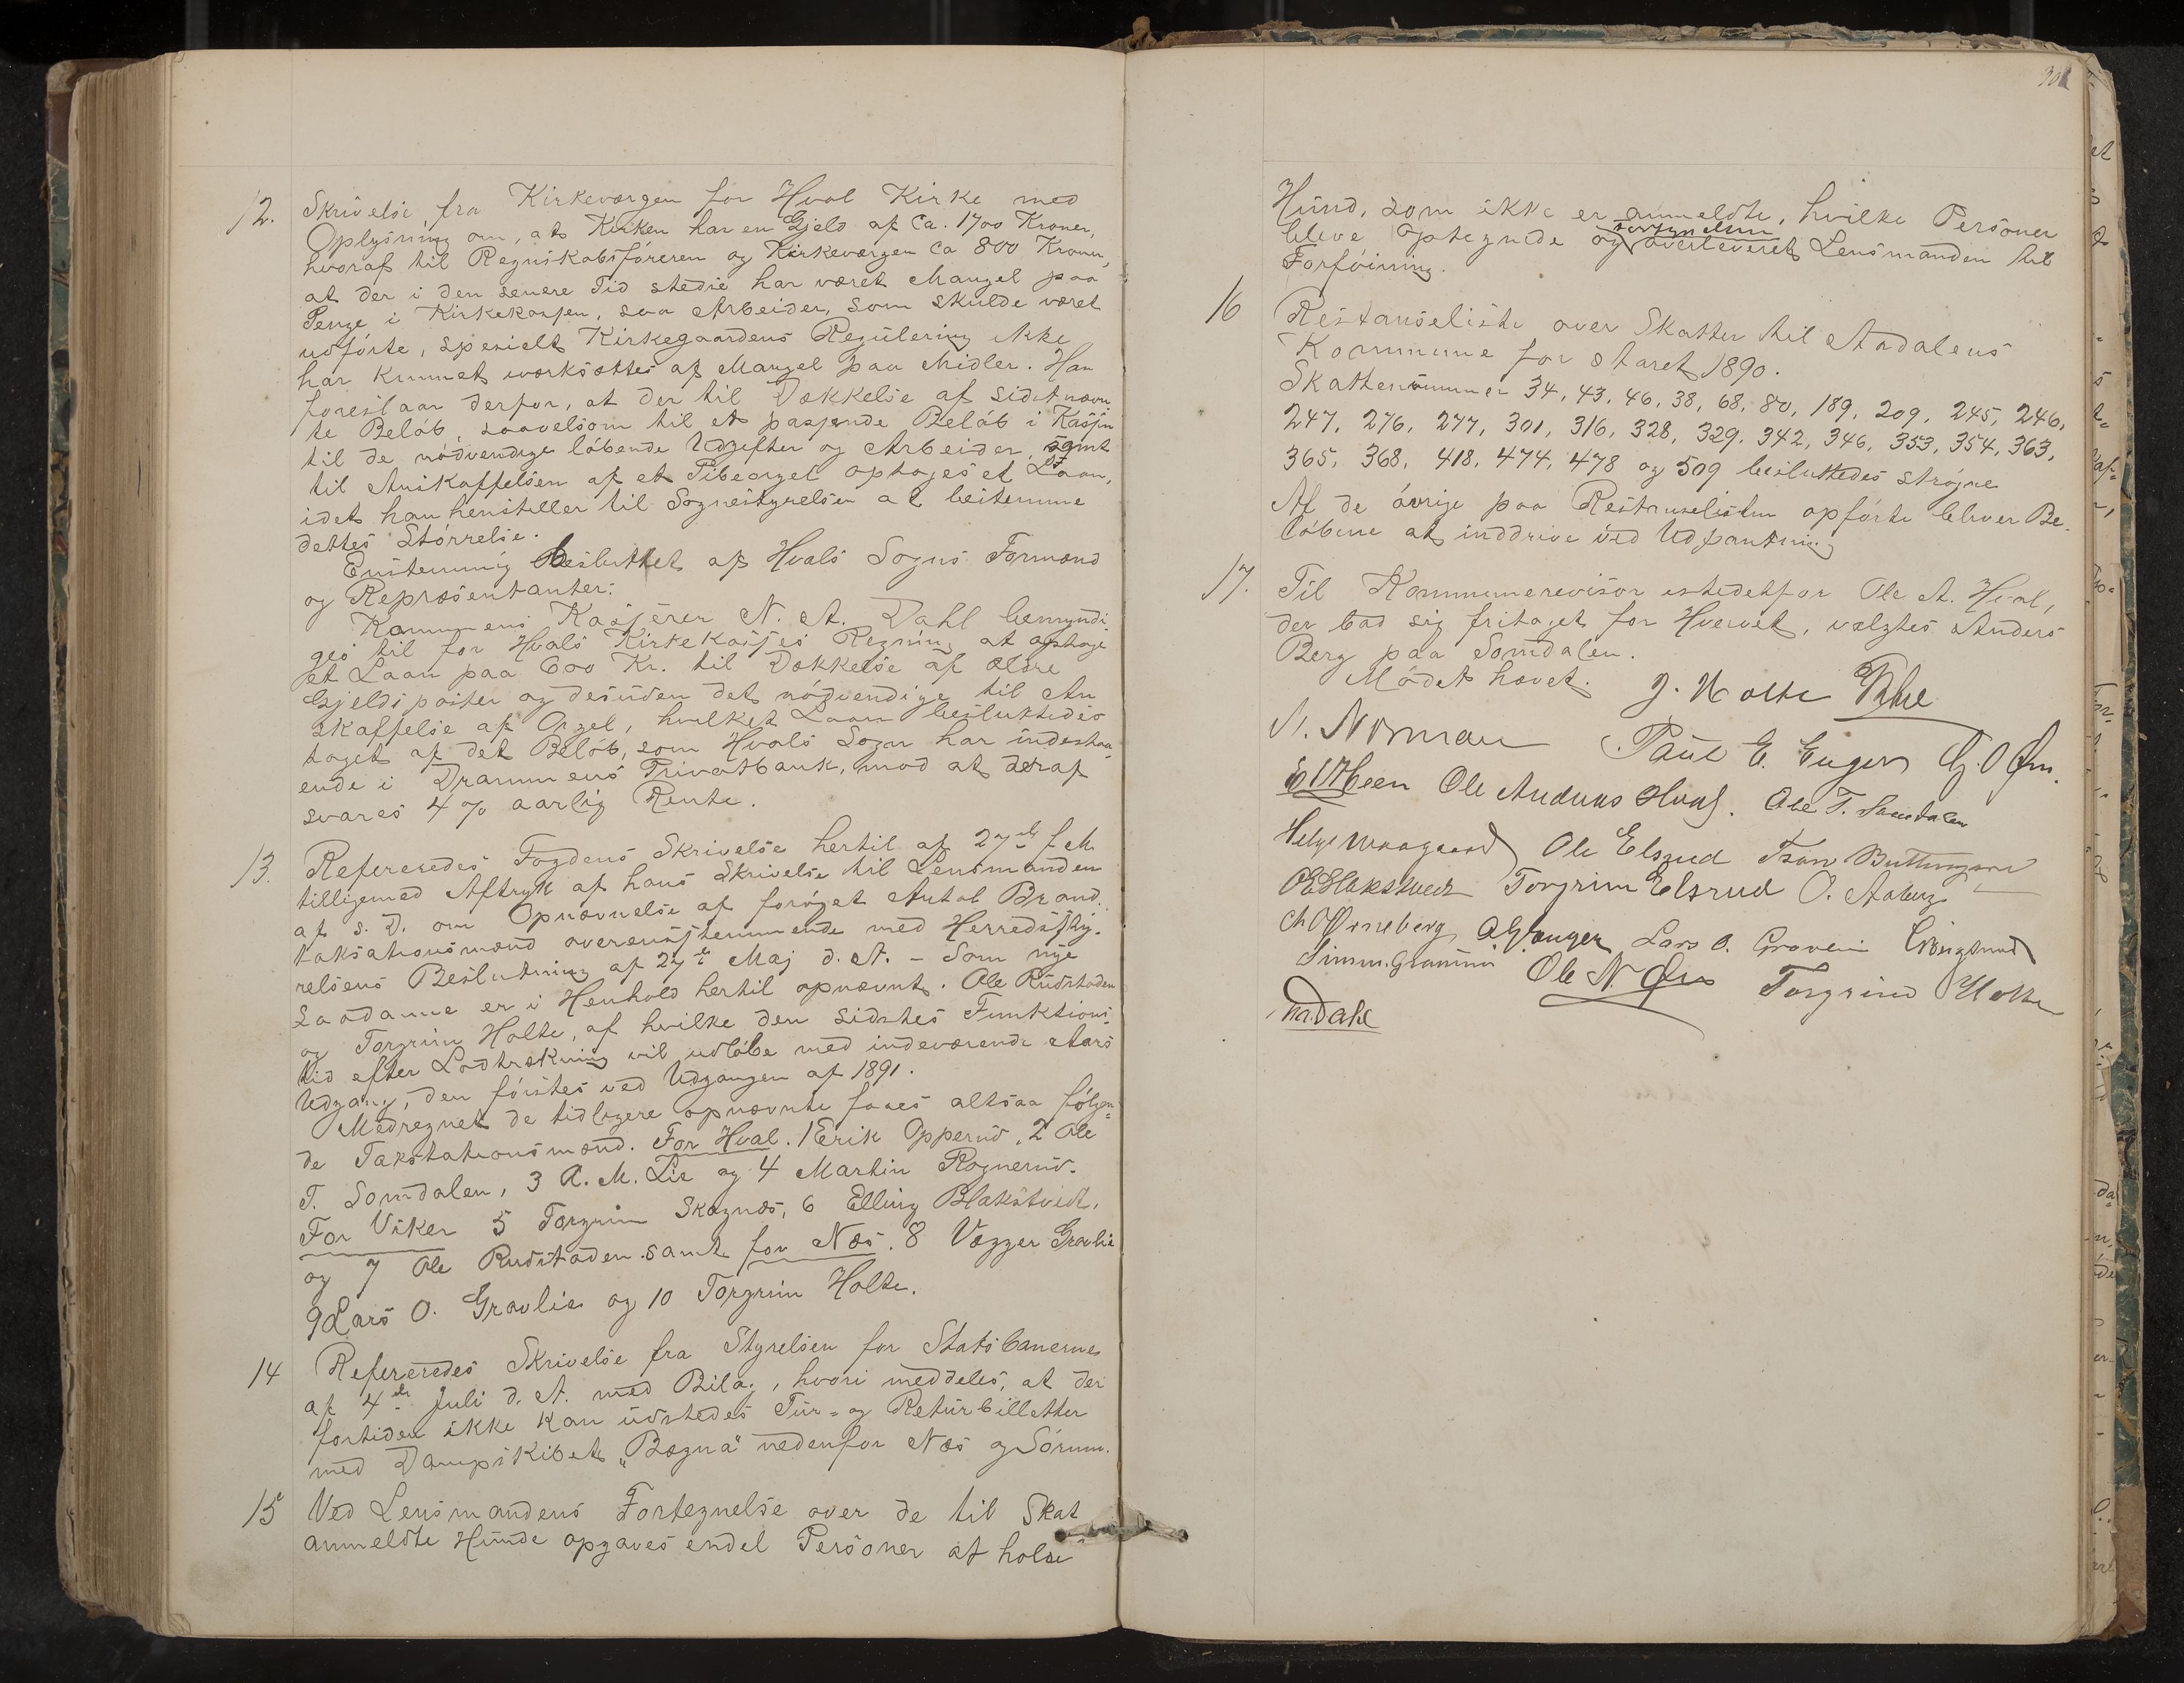 12. Skrivelse fra Kirkeværgen for Hval Kirke med
Oplysning om, at Kirken har en Gjeld af Ca. 1700 Kroner,
hvoraf til Regnskabsføreren og Kirkeværgen Ca 800 Kroner,
at der i den senere Tid stedse har været Mangel paa
Penge i Kirkekassen, saa Arbeider, som skulde været
udførte, specielt Kirkegaardens Regulering ikke
har kunnet iværksættes af Mangel paa Midler. Han
foreslaar derfor, at der til Dækkelse af sidstnævn
te Beløb, saavelsom til et passende Beløb i Kassen
til de nødvendige løbende Udgifter og Arbeider, samt
til Anskaffelsen af et Pibeorgel optages et Laan,
idet han henstiller til Sognestyrelsen at bestemme
dettes Størrelse.
Enstemmig besluttet af Hvals Sogns Formænd
og Repræsentanter:
Kommunens Kasserer N. A. Dahl bemyndi
ges til for Hvals Kirkekasses Regning at optage
et Laan paa 600 Kr. til Dækkelse af ældre
Gjeldsposter og desuden det nødvendige til An
skaffelse af Orgel, hvilket Laan besluttedes
taget af det Beløb, som Hvals Sogn har indestaa-
ende i Drammens Privatbank, mod at deraf
svares 4 % aarlig Rente.
13. Refereredes Fogdens Skrivelse hertil af 27de f. M.
tilligemed Aftryk af hans Skrivelse til Lensmanden
af s. D. om Opnævnelse af forøget Antal Brand-
taksationsmænd overensstemmende med Herredssty-
relsens Beslutning af 27de Maj d. A. - Som nye
Saadanne er i Henhold hertil opnævnt. Ole Rudstaden
og Torgrim Holte, af hvilke den sidstes Funktions-
tid efter Lodtrækning vil udløbe med indeværende Aars
Udgang, den førstes ved Udgangen af 1891.
Medregnet de tidligere opnævnte faaes altsaa følgen=
de Takstationsmænd. For Hval. 1 Erik Opperud, 2 Ole
T. Somdalen, 3 A. M. Lie og 4 Martin Rognerud.
For Viker 5 Torgrim Skagnæs, 6 Elling Blakstvedt,
og 7 Ole Rudstaden samt for Næs. 8 Vegger Gravlie
9 Lars O. Gravlie og 10 Torgrim Holte.
14 Refereredes Skrivelse fra Styrelsen for Statsbanerne
af 4de Juli d. A. med Bilag, hvori meddeles, at der
fortiden ikke kan udstedes Tur- og Returbilletter
med Dampskibet „Bægna" nedenfor Næs og Sørum.
15 Ved Lensmandens Fortegnelse over de til Skat
anmeldte Hunde opgaves endel Personer at holde
301
Hund, som ikke er anmeldte, hvilke Personer
bleve optegnede og fortegnelsen overleveret Lensmanden til
Forføining.
16 Restanseliste over Skatter til Aadalens
Kommune for Aaret 1890.
Skattenummer 34, 43, 46, 38, 68, 80, 189, 209, 245, 246,
247, 276, 277, 301, 316, 328, 329, 342, 346, 353, 354, 363,
365, 368, 418, 474, 478 og 509 besluttedes strøgne
Af de øvrige paa Restanselisten opførte bliver Be-
løbene at inddrive ved Udpantning
17. Til Kommunerevisor istedetfor Ole A. Hval,
der bad sig fritaget for Hvervet, vælgtes Anders
Berg paa Somdalen.
Mødet hævet. J. Nolte
N. Norman Paul E. Enger
Ole Andreas Hval. Ole T. Somdalen
Helge Ole Elsrud
Torgrim Elsrud O. Aaberg
Lars O. Gravlie
Ole N. Torgrim Holte
NADahl